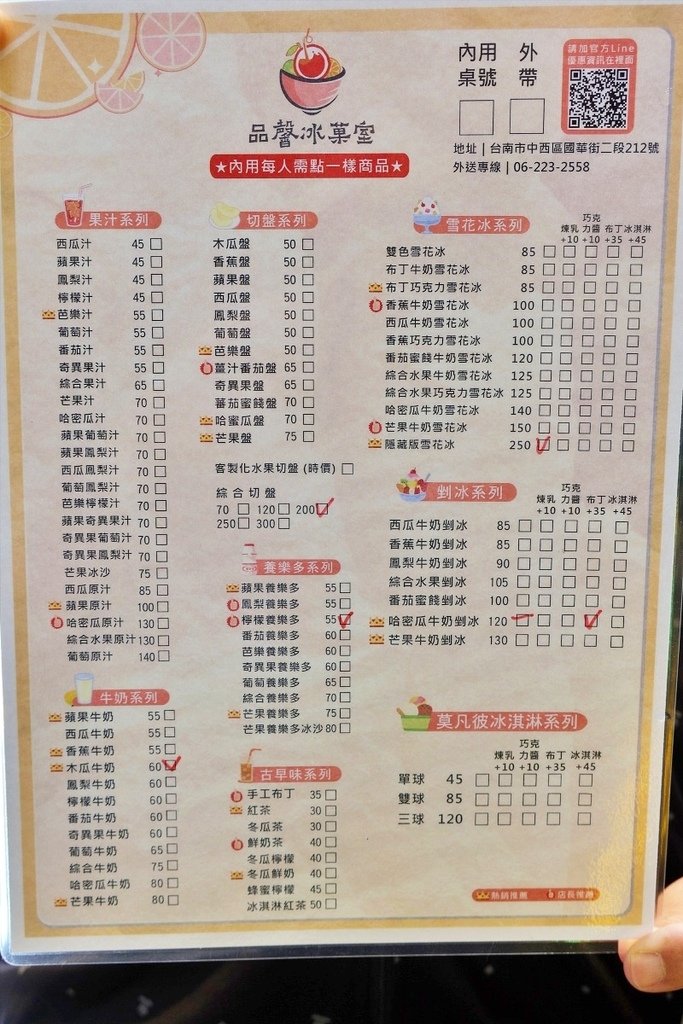 內用 外
桌號 帶
請加官方Line
優惠資訊在裡面
品馨冰菓室
★內用每人需點一樣商品★
地址｜台南市中西區國華街二段212號
外送專線｜06-223-2558
果汁系列
西瓜汁 45
蘋果汁 45
鳳梨汁 45
檸檬汁 45
芭樂汁 55
葡萄汁 55
番茄汁 55
奇異果汁 55
綜合果汁 65
芒果汁 70
哈密瓜汁 70
蘋果葡萄汁 70
蘋果鳳梨汁 70
西瓜鳳梨汁 70
葡萄鳳梨汁 70
芭樂檸檬汁 70
蘋果奇異果汁 70
奇異果葡萄汁 70
奇異果鳳梨汁 70
芒果冰沙 75
西瓜原汁 85
蘋果原汁 100
哈密瓜原汁 130
綜合水果原汁 130
葡萄原汁 140
牛奶系列
蘋果牛奶 55
西瓜牛奶 55
香蕉牛奶 55
木瓜牛奶 60
鳳梨牛奶 60
檸檬牛奶 60
番茄牛奶 60
奇異果牛奶 60
葡萄牛奶 65
綜合牛奶 75
哈密瓜牛奶 80
芒果牛奶 80
切盤系列
木瓜盤 50
香蕉盤 50
蘋果盤 50
西瓜盤 50
鳳梨盤 50
葡萄盤 50
芭樂盤 50
薑汁番茄盤 65
奇異果盤 65
蕃茄蜜餞盤 70
哈蜜瓜盤 70
芒果盤 75
客製化水果切盤 (時價)
綜合切盤
70 120 200
250 300
養樂多系列
蘋果養樂多 55
鳳梨養樂多 55
檸檬養樂多 55
番茄養樂多 60
芭樂養樂多 60
奇異果養樂多 60
葡萄養樂多 65
綜合養樂多 70
芒果養樂多 75
芒果養樂多冰沙 80
古早味系列
手工布丁 35
紅茶 30
冬瓜茶 30
鮮奶茶 40
冬瓜檸檬 40
冬瓜鮮奶 40
蜂蜜檸檬 45
冰淇淋紅茶 50
雪花冰系列
巧克
煉乳 力醬 布丁 冰淇淋
+10 +10 +35 +45
雙色雪花冰 85
布丁牛奶雪花冰 85
布丁巧克力雪花冰 85
香蕉牛奶雪花冰 100
西瓜牛奶雪花冰 100
香蕉巧克力雪花冰 100
番茄蜜餞牛奶雪花冰 120
綜合水果牛奶雪花冰 125
綜合水果巧克力雪花冰 125
哈密瓜牛奶雪花冰 140
芒果牛奶雪花冰 150
隱藏版雪花冰 250
剉冰系列
巧克
煉乳 力醬 布丁 冰淇淋
+10 +10 +35 +45
西瓜牛奶剉冰 85
香蕉牛奶剉冰 85
鳳梨牛奶剉冰 90
綜合水果剉冰 105
番茄蜜餞剉冰 100
哈密瓜牛奶剉冰 120
芒果牛奶剉冰 130
莫凡彼冰淇淋系列
巧克
煉乳 力醬 布丁 冰淇淋
+10 +10 +35 +45
單球 45
雙球 85
三球 120
熱銷推薦 店長推薦